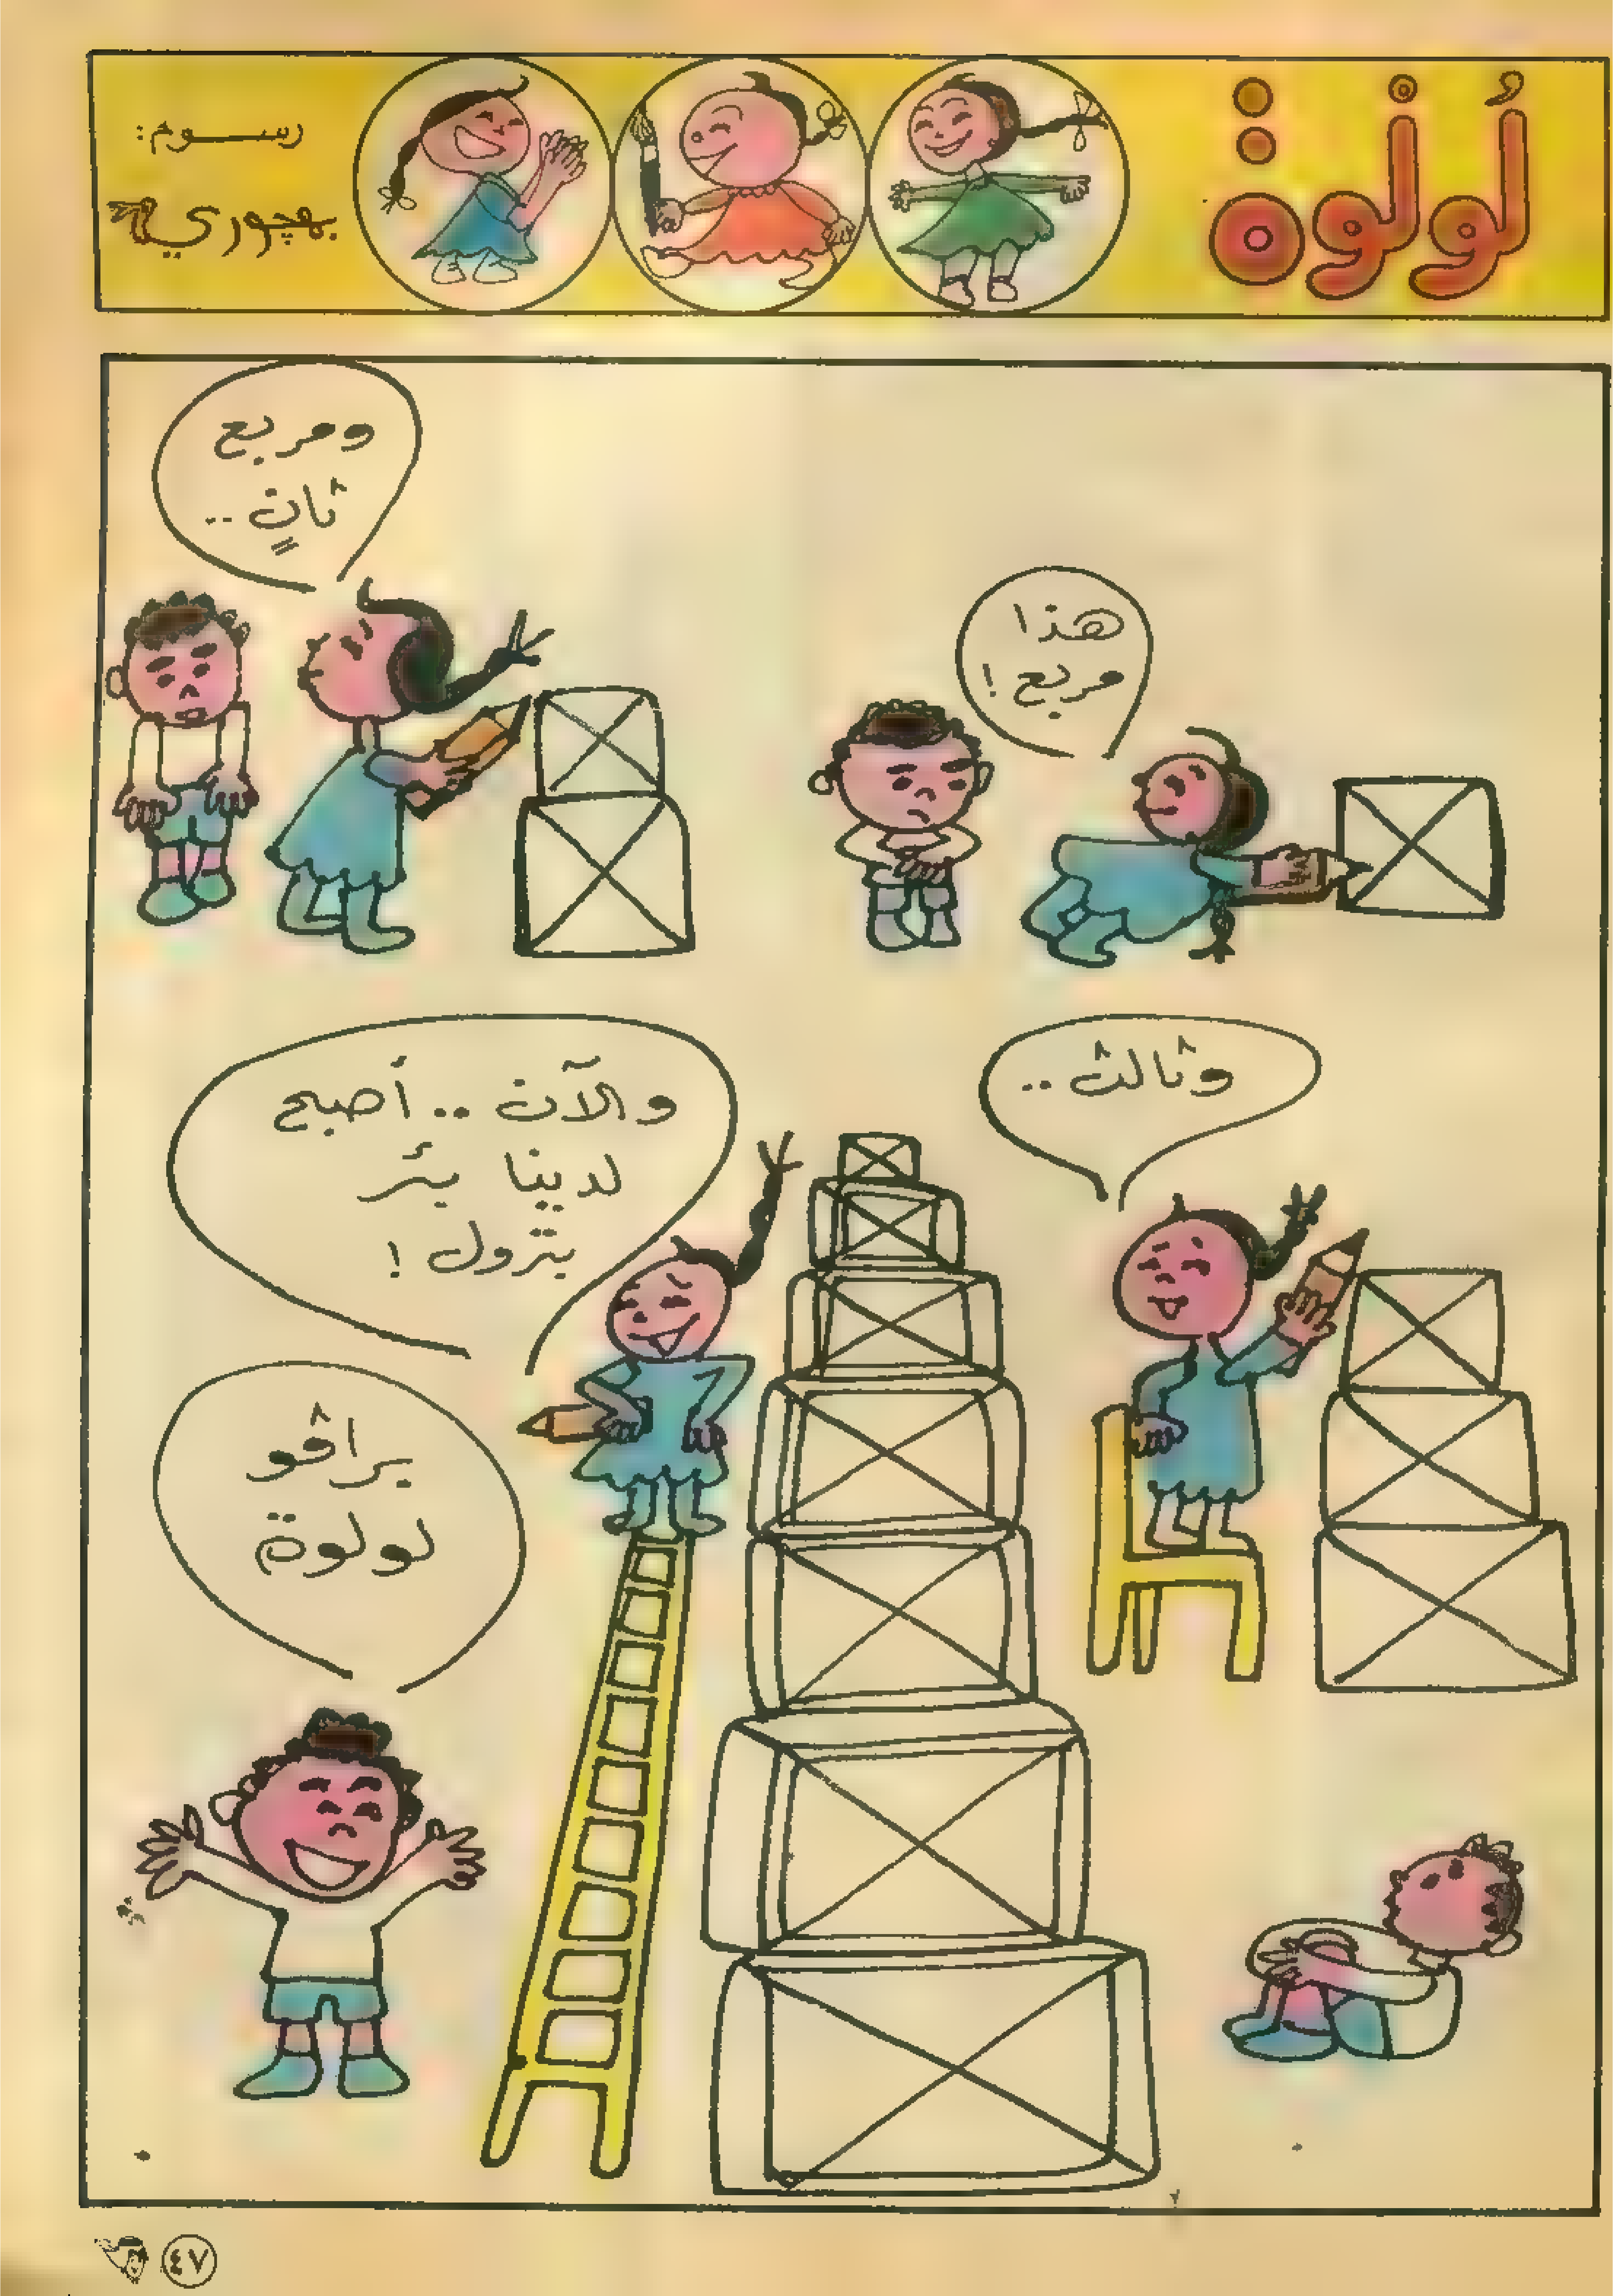 لُولُوة
رسوم:
بهجوري
هذا
مربع !
ومربع
ثانٍ ..
وثالث ..
والآن .. أصبح
لدينا بئر
بترول !
براڤو
لولوة
٤٧